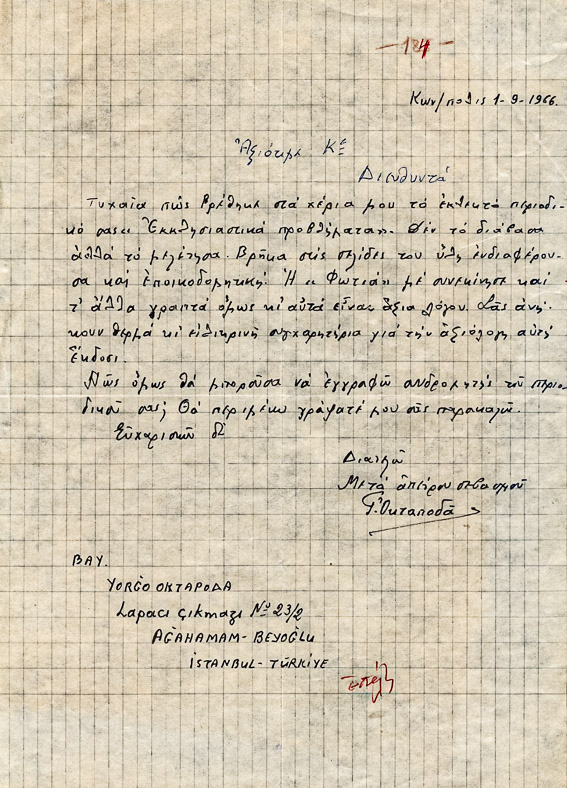 - 184 -
Κων/πολις 1-9-1966.
Ἀξιότιμε Κε
Διευθυντά
Τυχαῖα πῶς βρέθηκε στά χέρια μου τό ἐκλεκτό περιοδι-
κό σας « Ἐκκλησιαστικά προβλήματα». Δέν τό διάβασα
ἀλλά τό μελέτησα. Βρῆκα στίς σελίδες του ὕλη ἐνδιαφέρου-
σα καί ἐποικοδομητική. Ἡ « Φωτιά» μέ συνεκίνησε καί
τ' ἄλλα γραπτά ὅμως κι' αὐτά εἶναι ἄξια λόγου. Σᾶς ἀνή-
κουν θερμά κι' εἰλικρινῆ συγχαρητήρια γιά τήν ἀξιόλογη αὐτή
ἔκδοσι.
Πῶς ὅμως θά μποροῦσα νά ἐγγραφῶ συνδρομητής τοῦ περιο-
δικοῦ σας; Θά περιμένω γράψατέ μου σᾶς παρακαλῶ.
Εὐχαριστῶν
Διατελῶ
Μετά ἀπείρου σεβασμοῦ
Γ. Ὀκταποδᾶ
BAY.
YORĞO OKTAPODA
Lapacı çıkmazı No 23/2
AĞAHAMAM - BEYOĞLU
İSTANBUL - TÜRKİYE